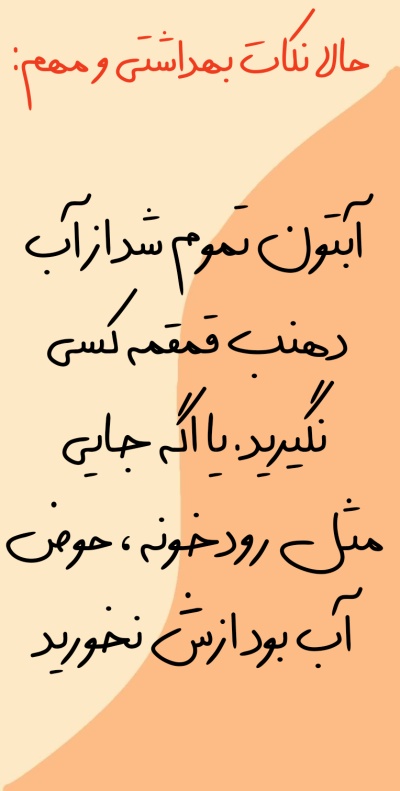 حالا نکات بهداشتی و مهم:
آبتون تموم شد از آب
دهنب قمقمه کسی
نگیرید. یا اگه جایی
مثل رودخونه ، حوض
آب بود ازش نخورید